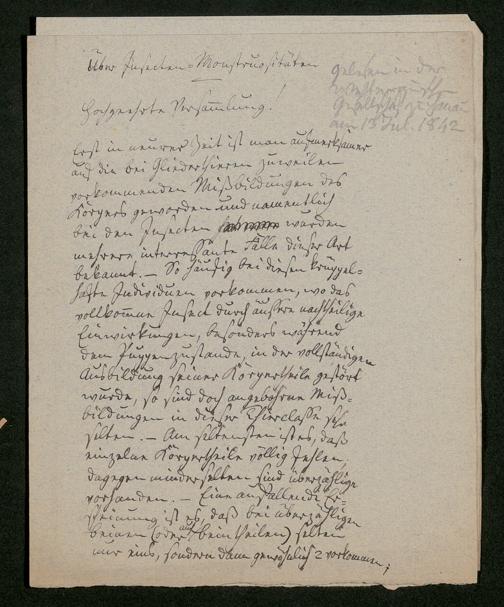 Über Insecten-Monstruositäten
gelesen in der
Gesellsch. zu Hanau
am 13 Jul. 1842
Hochgeehrte Versammlung!
Erst in neurer Zeit ist man aufmerksamer
auf die bei Gliederthieren zuweilen
vorkommenden Mißbildungen des
Körpers geworden und namentlich
bei den Insecten wurden
mehrere interressante Fälle dieser Art
bekannt. – So häufig bei diesen krüppel-
hafte Individuen vorkommen, wo das
vollkomne Insect durch äussre nachtheilige
Einwirkungen, besonders während
dem Puppenzustande, in der vollständigen
Ausbildung seiner Körpertheile gestört
wurde, so sind doch angebohrne Miß-
bildungen in dieser Thierclasse sehr
selten. – Am seltensten ist es, daß
einzelne Körpertheile völlig fehlen,
dagegen minder selten sind überzählige
vorhanden. – Eine auffallende Er-
scheinung ist es, daß bei überzähligen
Beinen (oder auch Beintheilen) selten
nur eins, sondern dann gewöhnlich 2 vorkommen;